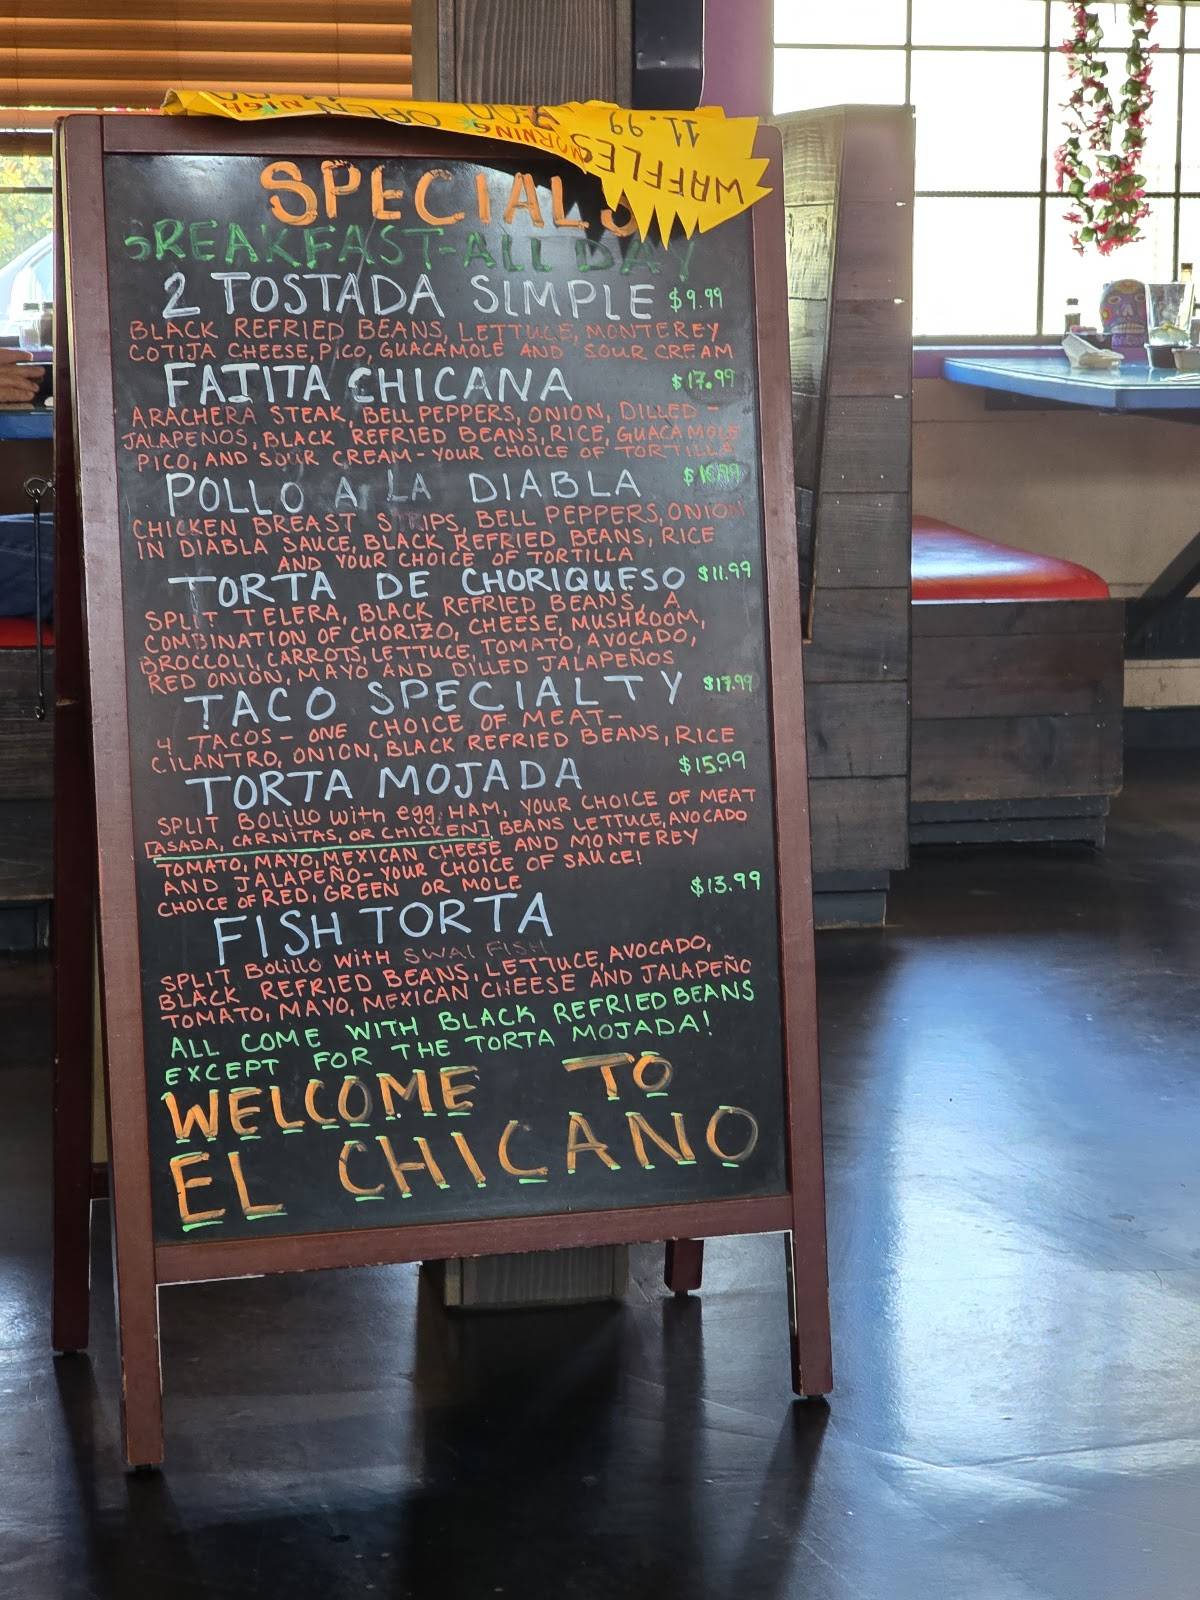 WAFFLES
11.99
MORNING
OPEN
SPECIALS
BREAKFAST-ALL DAY
2 TOSTADA SIMPLE $9.99
BLACK REFRIED BEANS, LETTUCE, MONTEREY
COTIJA CHEESE, PICO, GUACAMOLE AND SOUR CREAM
FAJITA CHICANA $17.99
ARACHERA STEAK, BELL PEPPERS, ONION, DILLED -
JALAPENOS, BLACK REFRIED BEANS, RICE, GUACAMOLE
PICO, AND SOUR CREAM - YOUR CHOICE OF TORTILLA
POLLO A LA DIABLA
CHICKEN BREAST STRIPS, BELL PEPPERS, ONION
IN DIABLA SAUCE, BLACK REFRIED BEANS, RICE
AND YOUR CHOICE OF TORTILLA
TORTA DE CHORIQUESO $11.99
SPLIT TELERA, BLACK REFRIED BEANS, A
COMBINATION OF CHORIZO, CHEESE, MUSHROOM,
BROCCOLI, CARROTS, LETTUCE, TOMATO, AVOCADO,
RED ONION, MAYO AND DILLED JALAPEÑOS
TACO SPECIALTY $17.99
4 TACOS - ONE CHOICE OF MEAT -
CILANTRO, ONION, BLACK REFRIED BEANS, RICE
TORTA MOJADA $15.99
SPLIT Bolillo with egg, HAM, YOUR CHOICE OF MEAT
[ASADA, CARNITAS, OR CHICKEN], BEANS LETTUCE, AVOCADO
TOMATO, MAYO, MEXICAN CHEESE AND MONTEREY
AND JALAPEÑO - YOUR CHOICE OF SAUCE!
CHOICE OF RED, GREEN OR MOLE
FISH TORTA $13.99
SPLIT Bolillo With SWAI FISH
BLACK REFRIED BEANS, LETTUCE, AVOCADO,
TOMATO, MAYO, MEXICAN CHEESE AND JALAPEÑO
ALL COME WITH BLACK REFRIED BEANS
EXCEPT FOR THE TORTA MOJADA!
WELCOME TO
EL CHICANO